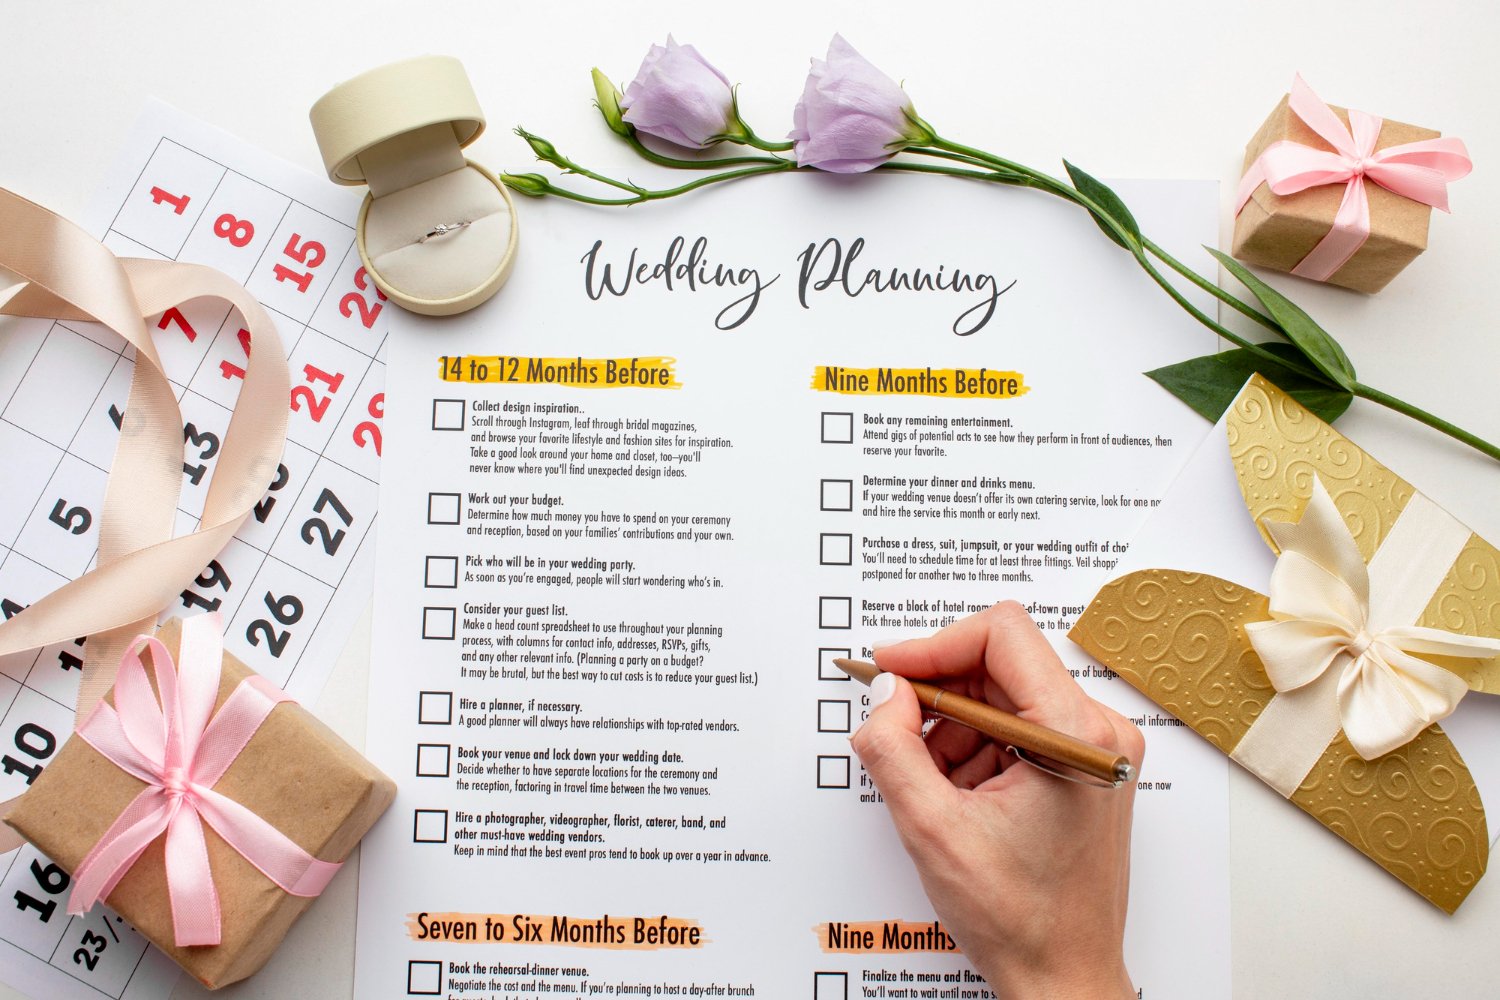 Wedding Planning
14 to 12 Months Before
Collect design inspiration..
Scroll through Instagram, leaf through bridal magazines,
and browse your favorite lifestyle and fashion sites for inspiration.
Take a good look around your home and closet, too—you'll
never know where you'll find unexpected design ideas.
Work out your budget.
Determine how much money you have to spend on your ceremony
and reception, based on your families' contributions and your own.
Pick who will be in your wedding party.
As soon as you're engaged, people will start wondering who's in.
Consider your guest list.
Make a head count spreadsheet to use throughout your planning
process, with columns for contact info, addresses, RSVPs, gifts,
and any other relevant info. (Planning a party on a budget?
It may be brutal, but the best way to cut costs is to reduce your guest list.)
Hire a planner, if necessary.
A good planner will always have relationships with top-rated vendors.
Book your venue and lock down your wedding date.
Decide whether to have separate locations for the ceremony and
the reception, factoring in travel time between the two venues.
Hire a photographer, videographer, florist, caterer, band, and
other must-have wedding vendors.
Keep in mind that the best event pros tend to book up over a year in advance.
Seven to Six Months Before
Book the rehearsal-dinner venue.
Negotiate the cost and the menu. If you're planning to host a day-after brunch
Nine Months Before
Book any remaining entertainment.
Attend gigs of potential acts to see how they perform in front of audiences, then
reserve your favorite.
Determine your dinner and drinks menu.
If your wedding venue doesn't offer its own catering service, look for one
and hire the service this month or early next.
Purchase a dress, suit, jumpsuit, or your wedding outfit of
You'll need to schedule time for at least three fittings. Veil
postponed for another two to three months.
Reserve a block of hotel
Pick three hotels at
to the
of
one now
and
Nine Months
Finalize the menu and
You'll want to wait until now to
1
8
15
7
21
13
5
27
19
26
10
16
23/